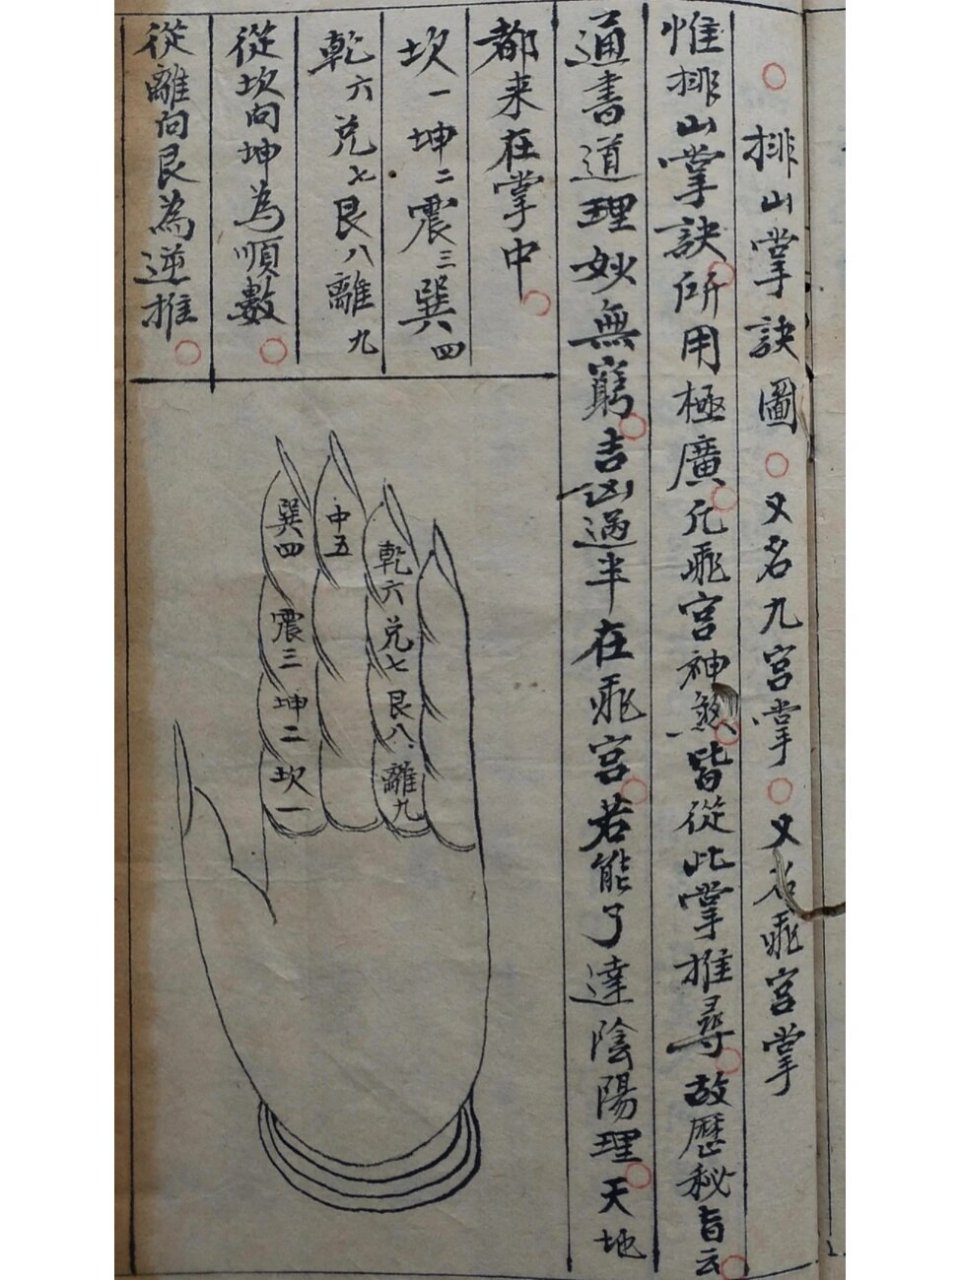 排山掌訣圖 又名九宮掌 又名飛宮掌
惟排山掌訣所用極廣凡飛宮神煞皆從此掌推尋故歷秘旨云
通書道理妙無窮吉凶過半在飛宮若能了達陰陽理天地
都来在掌中
坎一坤二震三巽四
乾六兌七艮八離九
從坎向坤為順數
從離向艮為逆推
巽四
震三
坤二
坎一
中五
乾六
兌七
艮八
離九